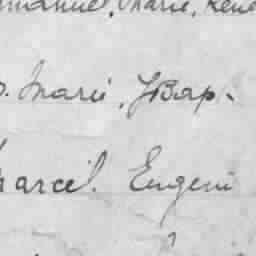 Emmanuel, Marie, René
Marie, JBap.
Marcel. Eugeni